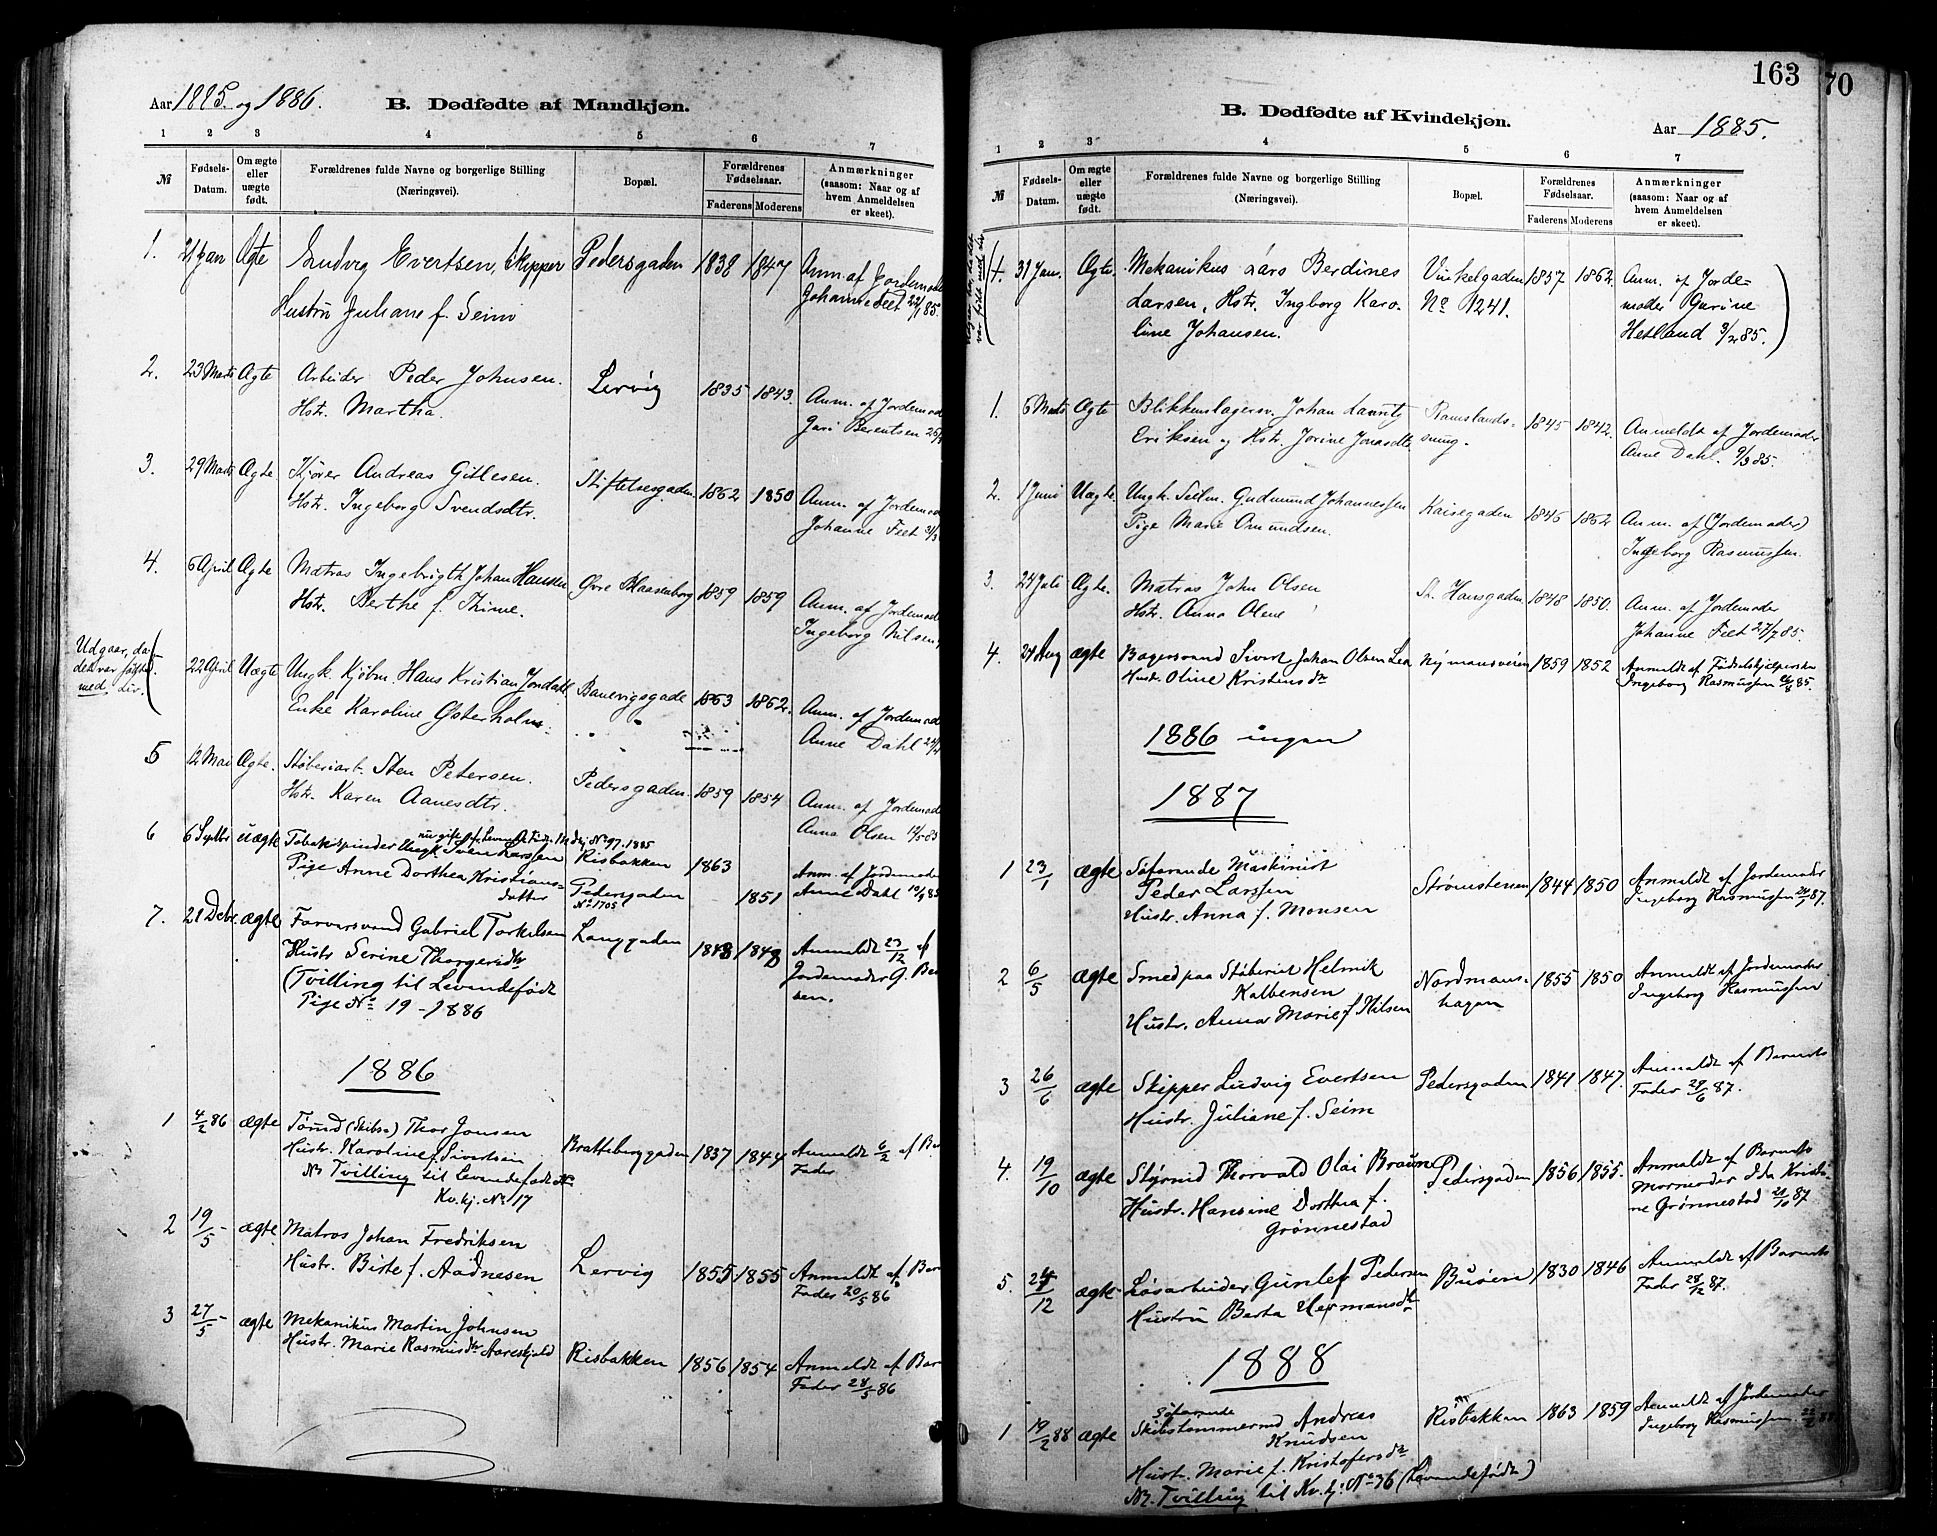 Aar 1885 og 1886.
B. Dødfødte af Mandkjøn.
1 2 3 4 5 6 7
№
Fødsels-Datum.
Om ægte eller uægte født.
Forældrenes fulde Navne og borgerlige Stilling
(Næringsvei).
Bopæl.
Forældrenes Fødselsaar.
Faderens Moderens
Anmærkninger
(saasom: Naar og af
hvem Anmeldelsen
er skeet).
1. 21 Jan Ægte Ludvig Evertsen, Skipper Pedersgaden 1838 1847 Anm. af Jordemoder
Hustru Juliane f. Seim Johanne Feet 22/1 85.
2. 23 Marts Ægte Arbeider Peder Johnsen. Lervig 1835 1843. Anm. af Jordemoder
Hstr. Martha. Gari Berentsen
3. 29 Marts Ægte Kjører Andreas Gitlesen. Stiftelsesgaden 1862 1850 Anm. af Jordemod
Hstr. Ingeborg Svendsdtr. Johanne Feet
4. 6 April Ægte Matros Ingebrigth Johan Hansen, Øvre Blaasenborg 1859 1859 Anm. af Jordemod
Hstr. Berthe f. Thime. Ingeborg Nilsen
Udgaar, da
det var født
med Liv.
22 April Uægte Ungk. Kjøbm. Hans Kristian Jondahl Banevigsgade 1863 1862. Anm. af Jordemod
Enke Karoline Østerholm. Anne Dahl
5 12 Mai Ægte. Støberiarb. Sten Petersen. Pedersgaden 1859 1854 Anm. af Jordemod
Hstr. Karen Aanesdtr. Anna Olsen
6 6 Septbr uægte Tobakspinder Ungk Sven Larssen Risbakken 1863 Anm. af Jordemoder
Pige Anne Dorthea Kristians- Pedersgaden 1851 Anne Dahl
datter No 1705
7. 21 Debr. ægte Farversvend Gabriel Torkelsen Langgaden 1848 1848 Anmeldt 23/12 af
Hustr Serine Thorgersdtr Jordemoder G. Be
(Tvilling til Levendefødt sen.
Pige No 19 - 1886
1886
1 4/2 86 ægte Tømd (Skibs) Thor Jonsen Bratteborggaden 1837 1844 Anmeldt 6/2 af Ba
Hustr. Karoline f. Sivertsen Fader
NB Tvilling til Levendefødt
Kv.kj. No 17
2 19/5 - ægte Matros Johan Fredriksen
Hustr. Birte f. Aadnesen Lervig 1855 1855 Anmeldt af Bar
Fader 20/5 86
3 27/5 - ægte Mekanikus Martin Johnsen
Hustr. Marie Rasmusdtr Aareskjold Risbakken 1856 1854 Anmeldt af Bar
Fader 28/5 86
163
70
B. Dødfødte af Kvindekjøn.
Aar 1885.
1 2 3 4 5 6 7
№
Fødsels-Datum.
Om ægte eller uægte født.
Forældrenes fulde Navne og borgerlige Stilling
(Næringsvei).
Bopæl.
Forældrenes Fødselsaar.
Faderens Moderens
Anmærkninger
(saasom: Naar og af
hvem Anmeldelsen
er skeet).
31 Jan. Ægte. Mekanikus Lars Berdines Vinkelgaden 1857 1862. Anm. af Jorde-
Larsen, Hstr. Ingborg Karo- No 1241. moder Gurine
line Johansen. Hetland 3/2 85.
1. 6 Marts Ægte Blikkenslagersv. Johan Lauritz Ramslands- 1845 1842. Anmeldt af Jordemoder
Eriksen og Hstr. Jorine Jonasdtr. Anne Dahl. 9/3 85.
2. 1 Juni Uægte. Ungk. Seilm. Gudmund Johannessen Kaisegaden 1846 1862 Anm. af (Jordemoder)
Pige Marie Omundsen. Ingeborg Rasmussen.
3. 24 Juli Ægte. Matros John Olsen St. Hansgaden 1848 1850. Anm. af Jordemoder
Hstr. Anna Olene Johanne Feet 27/7 85.
4. 24 Aug ægte Bagersvend Sivert Johan Olsen Lea Nymansveien 1859 1852 Anmeldt af Fødselshjelperske
Hustr. Oline Kristensdtr Ingeborg Rasmussen 26/8 85.
1886 ingen
1887
1 23/1 ægte Søfarende Maskinist
Peder Larssen Strømstenen 1844 1850 Anmeldt af Jordemoder
Hustr. Anna f. Monsen Ingeborg Rasmussen 24/1 87.
2 6/5 ægte Smed paa Støberiet Helmik Nordmans- 1855 1850 Anmeldt af Jordemoder
Kalbensen hagen Ingeborg Rasmussen
Hustr. Anna Marie f. Nilsen
3 26/6 ægte Skipper Ludvig Evertsen Pedersgaden 1841 1847. Anmeldt af Barnets
Hustr. Juliane f. Seim Fader 29/6 87.
4. 19/10 ægte Styrmd Thorvald Olai Braune Pedersgaden 1856 1855. Anmeldt af Barnets
Hustr. Hansine Dorthea f. Mormoder Ida Kristi-
Grønnestad ne Grønnestad 21/10 87
5. 24/12 ægte Løsarbeider Gunlef Pedersen Buøen 1830 1846 Anmeldt af Barnets
Hustru Berta Hermansdtr Fader 28/12 87.
1888
1 19/2 88 ægte Søfarende
Skibstømmermd Andreas Risbakken 1863 1859 Anmeldt af Jordemoder
Knudsen Ingeborg Rasmussen
Hustr. Marie f. Kristofersdtr
NB. Tvilling til Kv.kj. No 36 (Levendefødt)